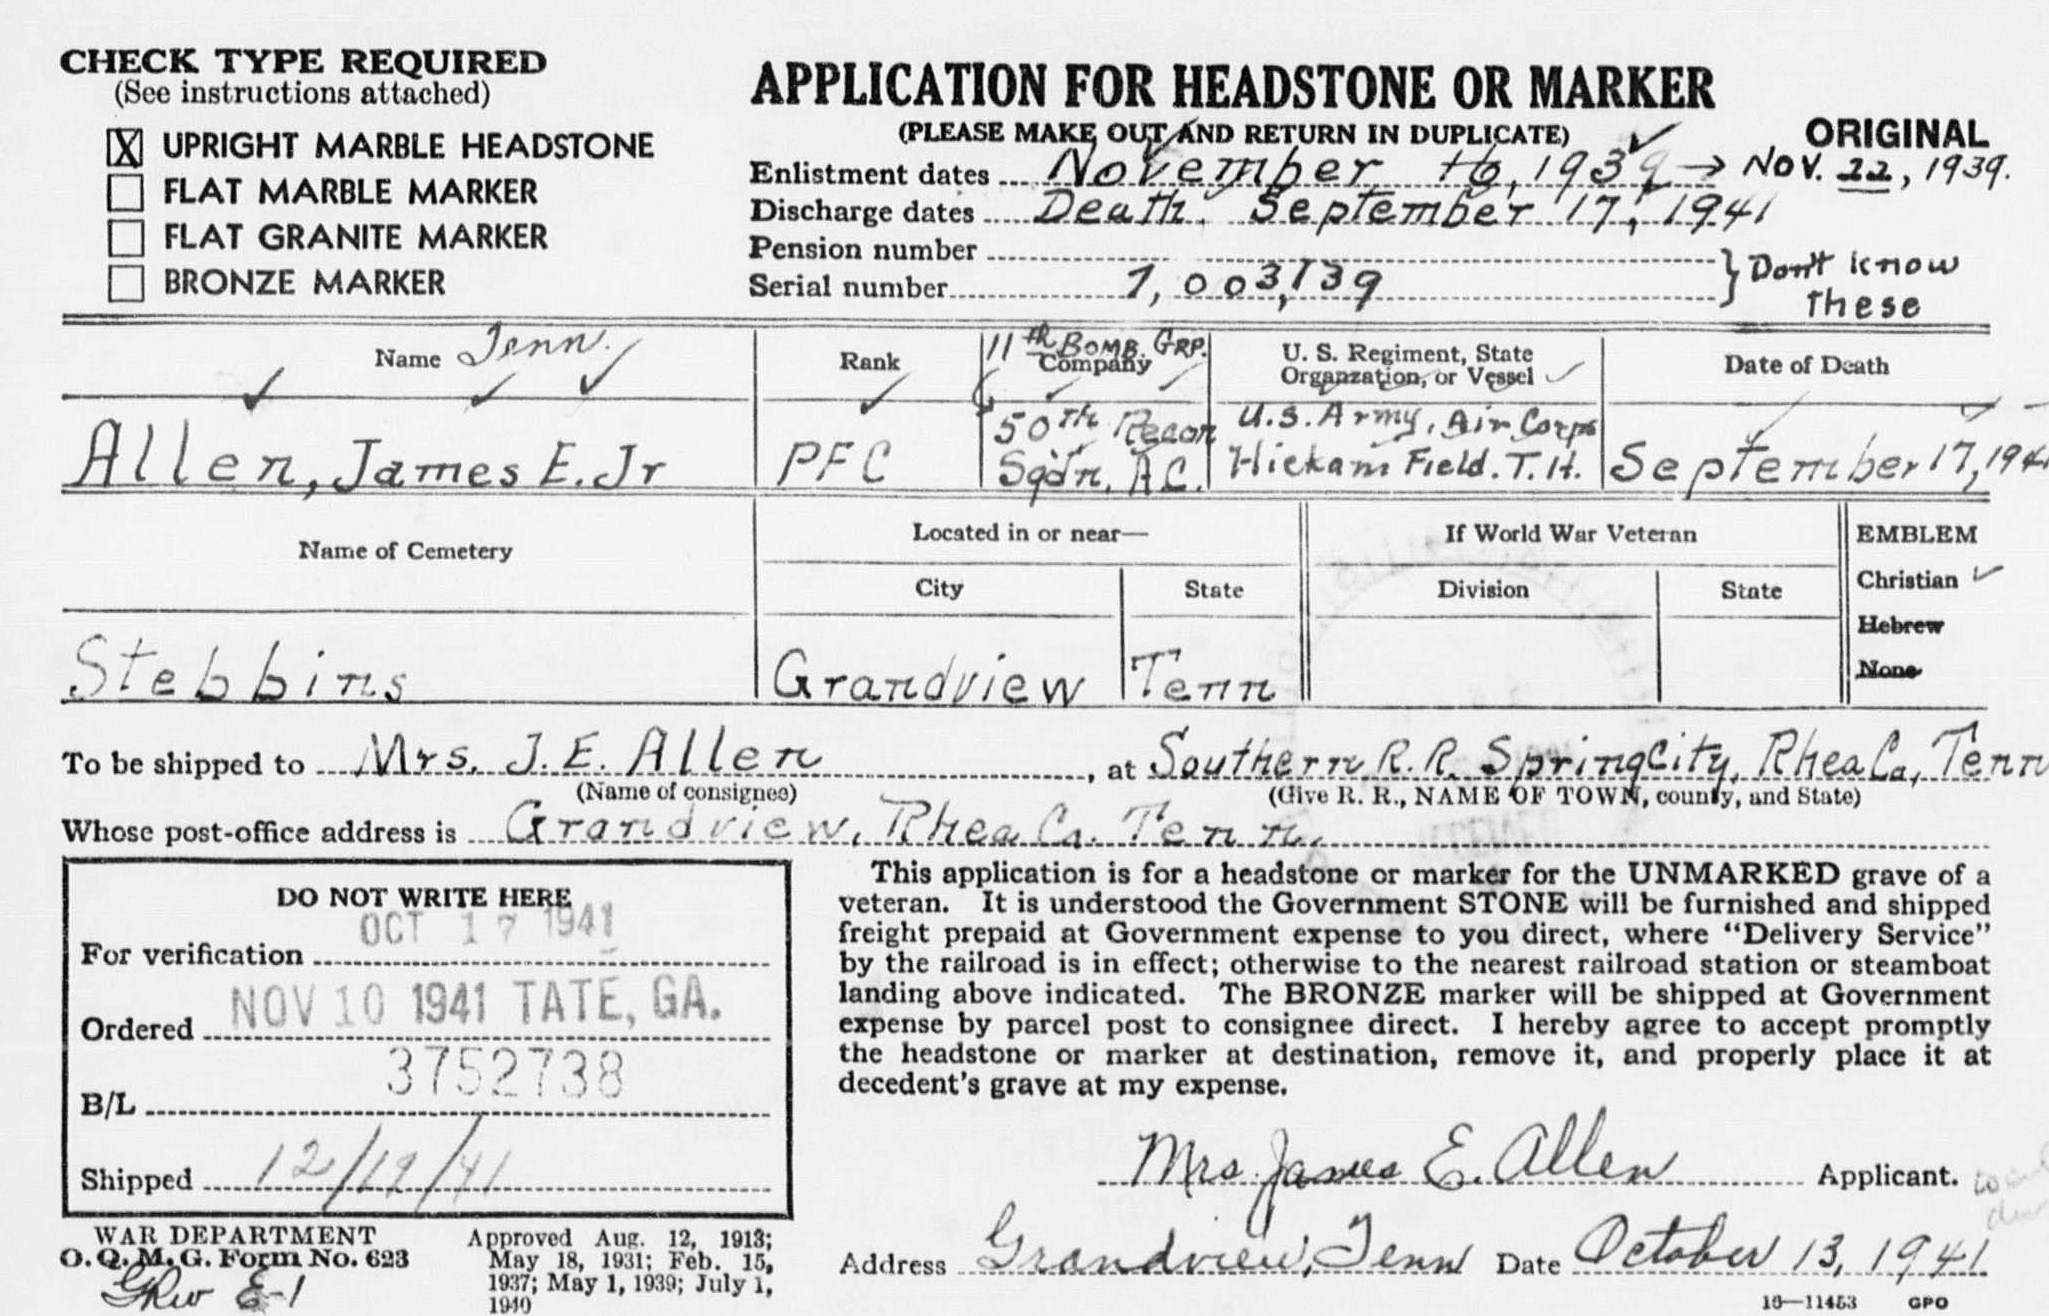 CHECK TYPE REQUIRED
(See instructions attached)
X UPRIGHT MARBLE HEADSTONE
FLAT MARBLE MARKER
FLAT GRANITE MARKER
BRONZE MARKER
APPLICATION FOR HEADSTONE OR MARKER
(PLEASE MAKE OUT AND RETURN IN DUPLICATE)
ORIGINAL
Enlistment dates November 1939 → Nov. 22, 1939.
Discharge dates Death, September 17, 1941
Pension number
Serial number 7,003,139
} Don't know
These
Name Tenn.
Rank
11th Bomb. Grp.
Company
U. S. Regiment, State
Organzation, or Vessel
Date of Death
Allen, James E. Jr
PFC
50th Recon
Sqdn, A.C.
U.S. Army, Air Corps
Hickam Field. T.H.
September 17, 1941
Name of Cemetery
Located in or near—
City
State
If World War Veteran
Division
State
EMBLEM
Christian ✓
Hebrew
None
Stebbins
Grandview
Tenn
To be shipped to Mrs. J. E. Allen, at Southern R. R. Spring City, Rhea Co, Tenn
(Name of consignee)
(Give R. R., NAME OF TOWN, county, and State)
Whose post-office address is Grandview, Rhea Co. Tenn.
DO NOT WRITE HERE
For verification OCT 17 1941
Ordered NOV 10 1941 TATE, GA.
B/L 3752738
Shipped 12/12/41
WAR DEPARTMENT
O. Q. M. G. Form No. 623
E-1
Approved Aug. 12, 1913;
May 18, 1931; Feb. 15,
1937; May 1, 1939; July 1,
1940
This application is for a headstone or marker for the UNMARKED grave of a
veteran. It is understood the Government STONE will be furnished and shipped
freight prepaid at Government expense to you direct, where "Delivery Service"
by the railroad is in effect; otherwise to the nearest railroad station or steamboat
landing above indicated. The BRONZE marker will be shipped at Government
expense by parcel post to consignee direct. I hereby agree to accept promptly
the headstone or marker at destination, remove it, and properly place it at
decedent's grave at my expense.
Mrs. James E. Allen Applicant.
Address Grandview, Tenn Date October 13, 1941
16—11453 GPO